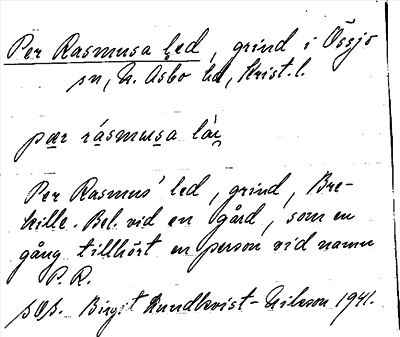 Per Rasmusa led, grind i Össjö
sn, N. Åsbo hd, Krist. l.
pær rásmusa lá
Per Rasmus' led, grind, Bre-
kille. Bel. vid en gård, som en
gång tillhört en person vid namn
P. R.
Birgit Rundkvist-Nilsson 1941.